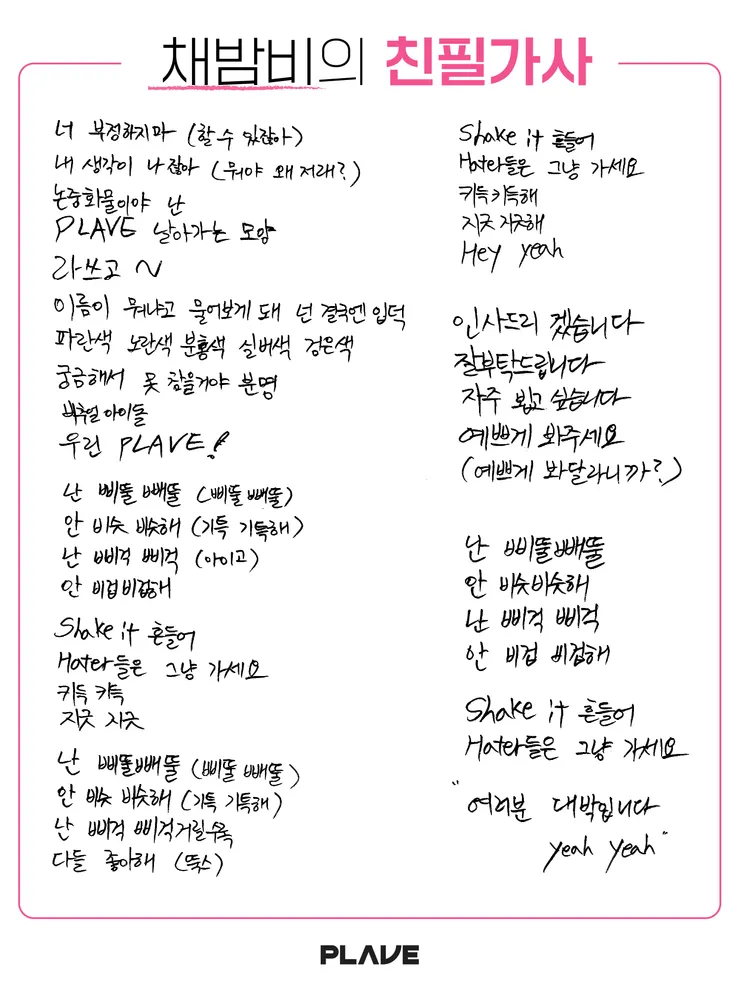 채밤비의 친필가사
너 부정하지마 (할 수 있잖아)
내 생각이 나잖아 (뭐야 왜 저래?)
논중화물이야 난
PLAVE 날아가는 모양
라쓰고 ~
이름이 뭐냐고 물어보게 돼 넌 결국엔 입덕
파란색 노란색 분홍색 실버색 검은색
궁금해서 못 참을거야 분명
버추얼 아이돌
우린 PLAVE!
난 삐뚤 빼뚤 (삐뚤 빼뚤)
안 비슷 비슷해 (기특 기특해)
난 삐걱 삐걱 (아이고)
안 비겁 비겁해
Shake it 흔들어
Hater들은 그냥 가세요
키득 키득
지긋 지긋
난 삐뚤빼뚤 (삐뚤 빼뚤)
안 비슷 비슷해 (기특 기특해)
난 삐걱 삐걱거릴수록
다들 좋아해 (뜩스)
Shake it 흔들어
Hater들은 그냥 가세요
키득키득해
지긋 지긋해
Hey yeah
인사드리 겠습니다
잘부탁드립니다
자주 뵙고 싶습니다
예쁘게 봐주세요
(예쁘게 봐달라니까?)
난 삐뚤빼뚤
안 비슷비슷해
난 삐걱 삐걱
안 비겁 비겁해
Shake it 흔들어
Hater들은 그냥 가세요
"여러분 대박입니다
yeah yeah"
PLAVE